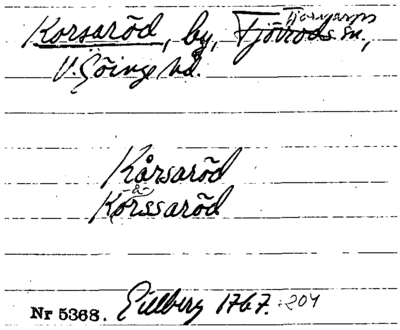 Korsaröd, by, Fjövods sn.,
V. Göinge hd.
Kårsaröd
-&-
Kårssaröd
Nr 5368. Gillberg 1767. 204